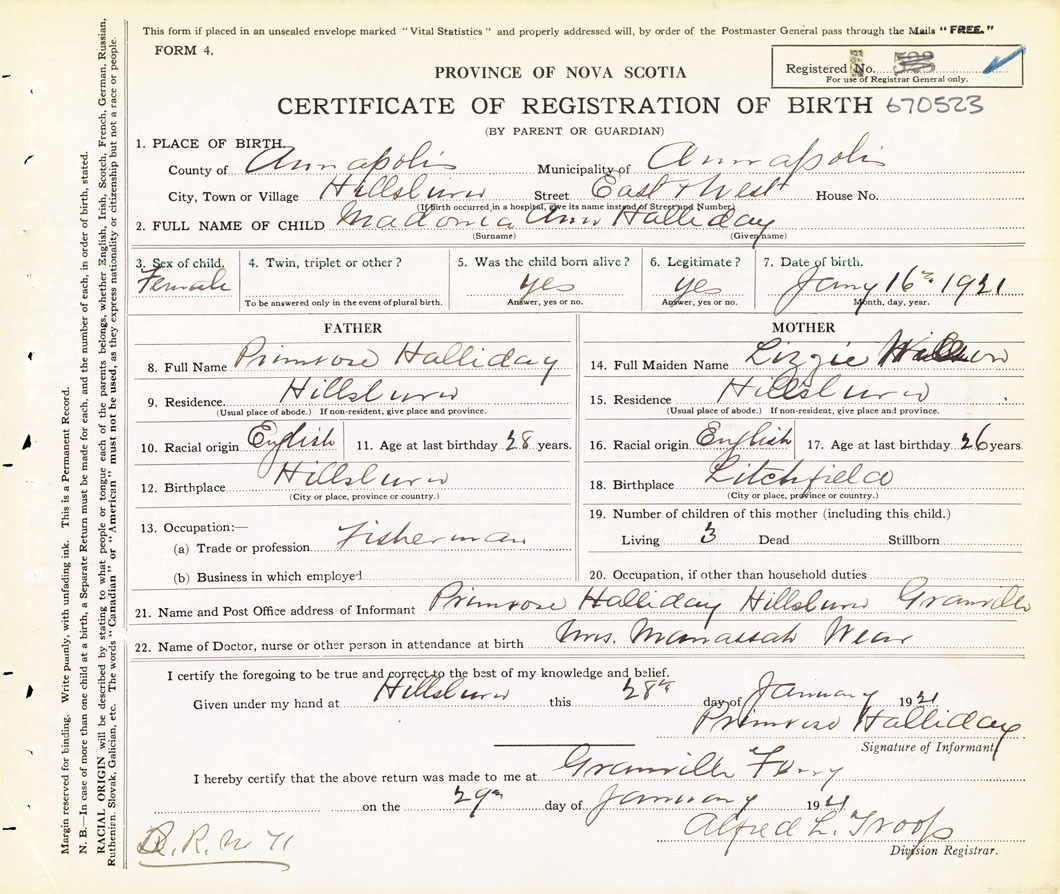 This form if placed in an unsealed envelope marked "Vital Statistics" and properly addressed will, by order of the Postmaster General pass through the Mails "FREE."
FORM 4.
Registered No.
For use of Registrar General only.
PROVINCE OF NOVA SCOTIA
CERTIFICATE OF REGISTRATION OF BIRTH 670523
(BY PARENT OR GUARDIAN)
1. PLACE OF BIRTH
County of Annapolis Municipality of Annapolis
City, Town or Village Hillsburn Street East & West House No.
(If birth occurred in a hospital, give its name instead of Street and Number)
2. FULL NAME OF CHILD Madonia Ann Halliday
(Surname) (Given name)
3. Sex of child. 4. Twin, triplet or other? 5. Was the child born alive? 6. Legitimate? 7. Date of birth.
Female yes yes Jany 16th 1921
To be answered only in the event of plural birth. Answer, yes or no. Answer, yes or no. Month, day, year.
FATHER
8. Full Name Primrose Halliday
9. Residence Hillsburn
(Usual place of abode.) If non-resident, give place and province.
10. Racial origin English 11. Age at last birthday 28 years.
12. Birthplace Hillsburn
(City or place, province or country.)
13. Occupation:—
(a) Trade or profession Fisherman
(b) Business in which employed
MOTHER
14. Full Maiden Name Lizzie
15. Residence Hillsburn
(Usual place of abode.) If non-resident, give place and province.
16. Racial origin English 17. Age at last birthday 26 years.
18. Birthplace Litchfield
(City or place, province or country.)
19. Number of children of this mother (including this child.)
Living 3 Dead Stillborn
20. Occupation, if other than household duties
21. Name and Post Office address of Informant Primrose Halliday Hillsburn Granville
22. Name of Doctor, nurse or other person in attendance at birth Mrs. Manassah Wear
I certify the foregoing to be true and correct to the best of my knowledge and belief.
Given under my hand at Hillsburn this 28th day of January 1921
Primrose Halliday
Signature of Informant
I hereby certify that the above return was made to me at Granville Ferry
on the 29th day of January 1921
Alfred L. Troop
Division Registrar.
R. R. No 71
Margin reserved for binding. Write plainly, with unfading ink. This is a Permanent Record.
N. B.—In case of more than one child at a birth, a Separate Return must be made for each, and the number of each, in order of birth, stated.
RACIAL ORIGIN will be described by stating to what people or tongue each of the parents belongs, whether English, Irish, Scotch, French, German, Russian,
Ruthenian, Slovak, Galician, etc. The words "Canadian" or "American" must not be used, as they express nationality or citizenship but not a race or people.